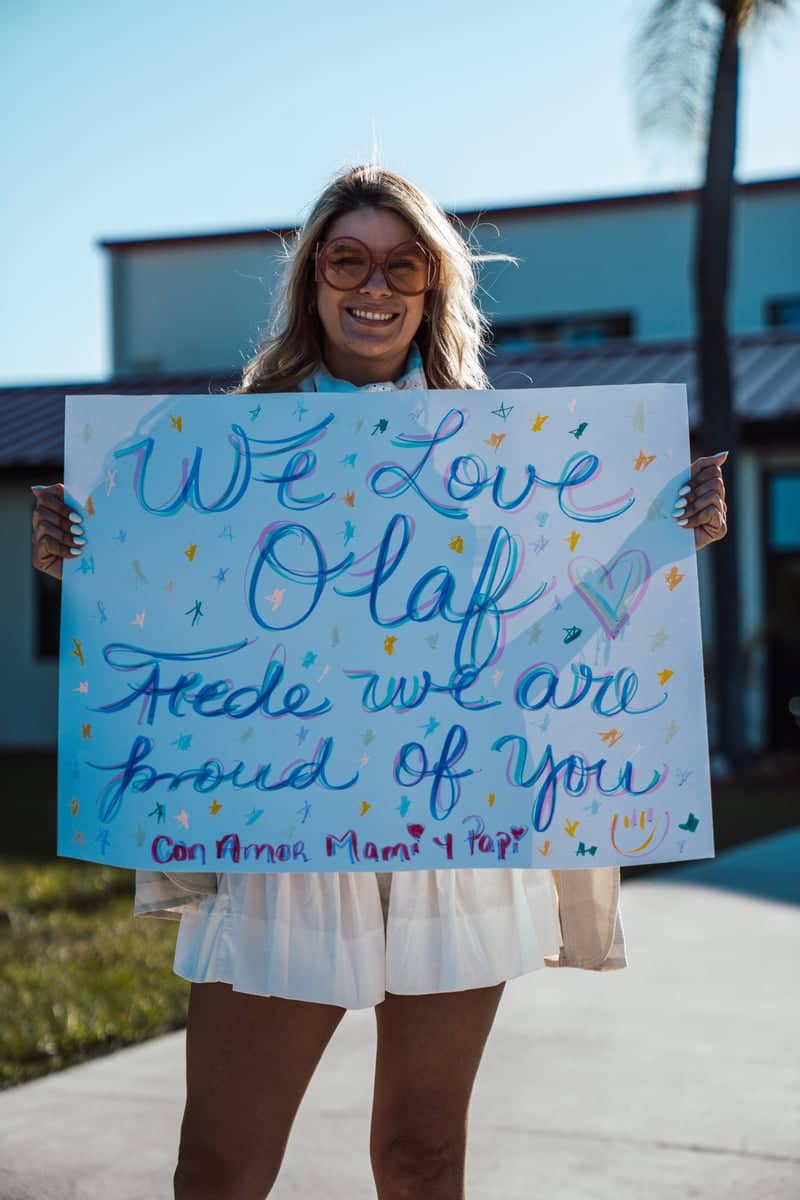 We Love
Olaf
Fede we are
proud of You
Con Amor Mami y Papi